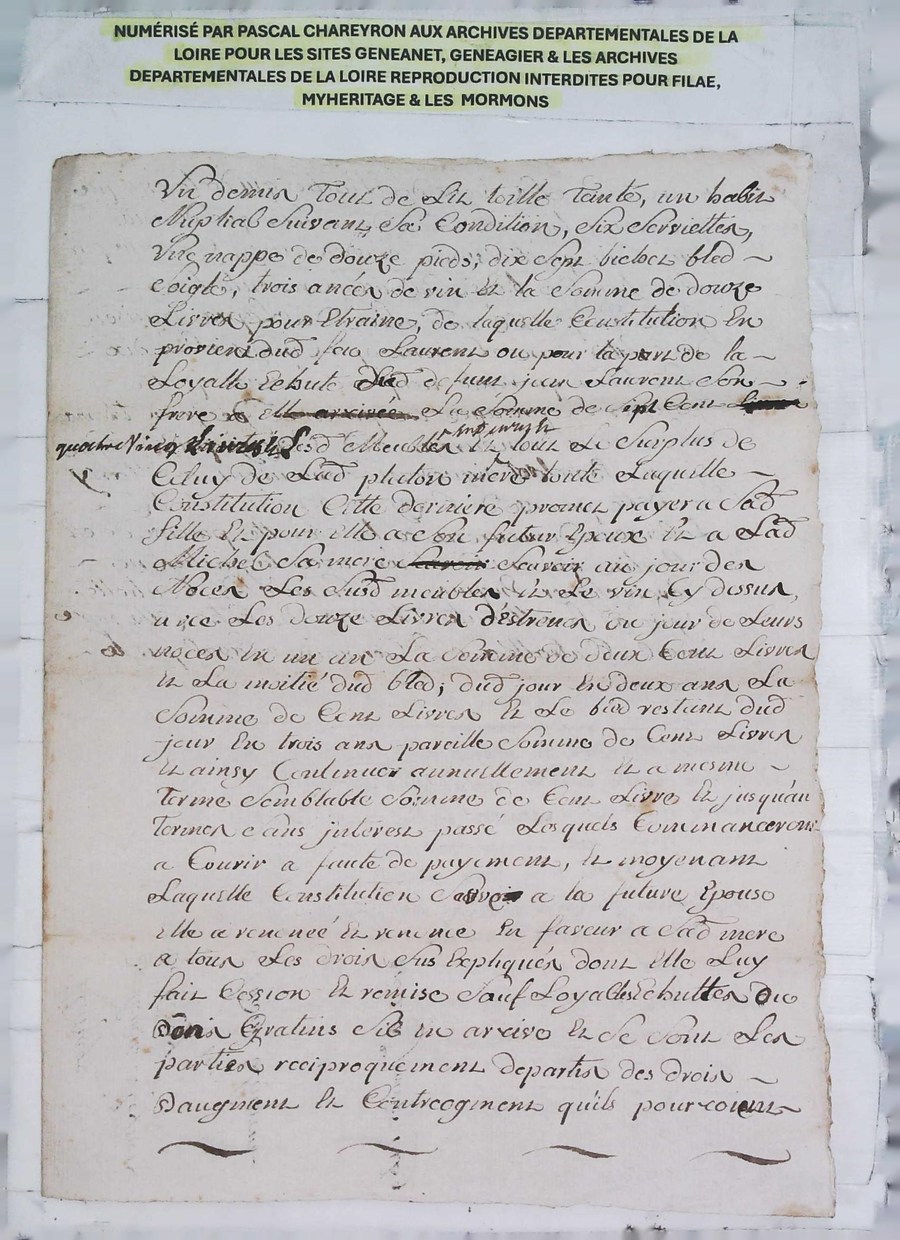 NUMÉRISÉ PAR PASCAL CHAREYRON AUX ARCHIVES DEPARTEMENTALES DE LA
LOIRE POUR LES SITES GENEANET, GENEAGIER & LES ARCHIVES
DEPARTEMENTALES DE LA LOIRE REPRODUCTION INTERDITES POUR FILAE,
MYHERITAGE & LES MORMONS
Un demis Tour de Lit toille Tainte, un habit
Nuptial Suivant Sa Condition, Six Serviettes,
Une nappe de douze pieds, dix Sept bichet bled
Seigle, trois anées de vin Et la Somme de douze
Livres pour Etraine, de laquelle Constitution En
provient dud feu Laurent ou pour la part de la
Loyalle Echute dud defunt jean Laurent Son
frere La Somme de Sept Cent
quatre Vingt Livres Lesd Meubles Et tout Le Surplus de
Celuy de Lad mere toute Laquelle
Constitution Cette derniere promet payer a Sad
fille Et pour Elle a Son futur Epoux Et a Lad
Michel Sa mere Scavoir au jour des
Noces Les Susd meubles Et Le vin Cy dessus,
avec Les douze Livres d'Estrenes au jour de Leurs
noces En un an La Somme de deux Cent Livres
Et La moitié dud bled; dud jour En deux ans La
Somme de Cent Livres Et Le bled restant dud
jour En trois ans pareille Somme de Cent Livres
Et ainsy Continuer annuellement Et a mesme
Terme Semblable Somme de Cent Livre Et jusqu'au
Termes Sans interest passé Lesquels Commanceront
a Courir a faute de payement, Et moyenant
Laquelle Constitution a la future Epouse
Elle a renoncé Et renonce En faveur a Sad mere
a tous Les droits Sus Expliqués dont Elle Luy
fait Cession Et remise Sauf Loyalles Echuttes Ou
Dons Gratuis Sil En arrive Et Se Sont Les
parties reciproquement departis des droits
Daugment Et Contreogment quils pourroient